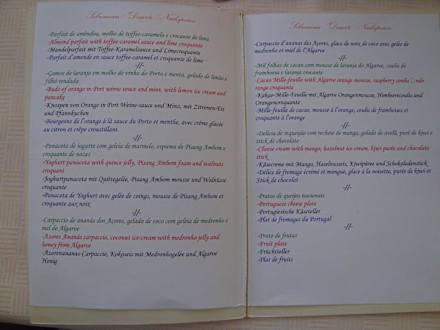 Sobremesas Desserts Nachspeisen
-Parfait de amêndoa, molho de toffee-caramelo e crocante de lima
-Almond parfait with toffee-caramel sauce and lime croquante
-Mandelparfait mit Toffee-Karamelsauce und Limecroquante
-Parfait d'amende en sauce toffee-caramel et croquante de lime
-//-
-Gomos de laranja em molho de vinho do Porto e menta, gelado de limão e
filhó rendada
-Buds of orange in Port wine sauce and mint, with lemon ice cream and
pancake
-Knospen von Orange in Port Weine-sauce und Minz, mit Zitronen-Eis
und Pfannkuchen
-Bourgeons de l'orange à la sauce du Porto et menthe, avec crème glacée
au citron et crêpe croustillant
-//-
-Panacota de iogurte com geleia de marmelo, espuma de Pisang Ambom e
croquante de nozes
-Yoghurt panacota with quince jelly, Pisang Ambom foam and walnuts
croquant
-Joghurtpanacota mit Quittegelée, Pisang Ambom mousse und Walnüsse
croquante
-Panacota de Yoghurt avec gelée de coings, mousse de Pisang Ambom et
croquante aux noix
-//-
-Carpaccio de ananás dos Açores, gelado de coco com geleia de medronho e
mel do Algarve
-Azores Ananás carpaccio, coconut ice-cream with medronho jelly and
honey from Algarve
-Azorenananas Carpaccio, Kokoseis mit Medronhogelée und Algarve
Honig
Sobremesas Desserts Nachspeisen
-Carpaccio d'ananas des Açores, glace de noix de coco avec gelée de
medronho et miel de l'Algarve
-//-
-Mil folhas de cacau com mousse de laranja do Algarve, coulis de
framboesa e laranja crocante
-Cacau mille-feuille with Algarve orange mousse, raspberry coulis
range croquante
-Kakao-Mille-Feuille mit Algarve Orangenmousse, Himbeercoulis und
Orangencroquante
-Mille-feuille de cacau, mousse à l'orange, coulis de framboises et
croquante à l'orange
-//-
-Delícia de requeijão com recheio de manga, gelado de avelã, puré de kiwi e
stick de chocolate
-Cheese cream with mango, hazelnut ice cream, kiwi purée and chocolate
stick
-Käsecreme mit Mango, Hazelnusseis, Kiwipüree und Schokoladenstick
-Délice de fromage écrémé et mangue, glacé à la noisette, purée de kiwi et
Stick de chocolat
-//-
-Pratos de queijos nacionais
-Portuguese cheese plate
-Portugiesische Käseteller
-Plat de fromages du Portugal
-//-
-Prato de frutas
-Fruit plate
-Früchteteller
-Plat de fruits